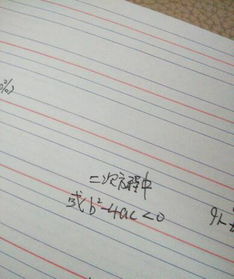 二次方程中
或b²-4ac<0